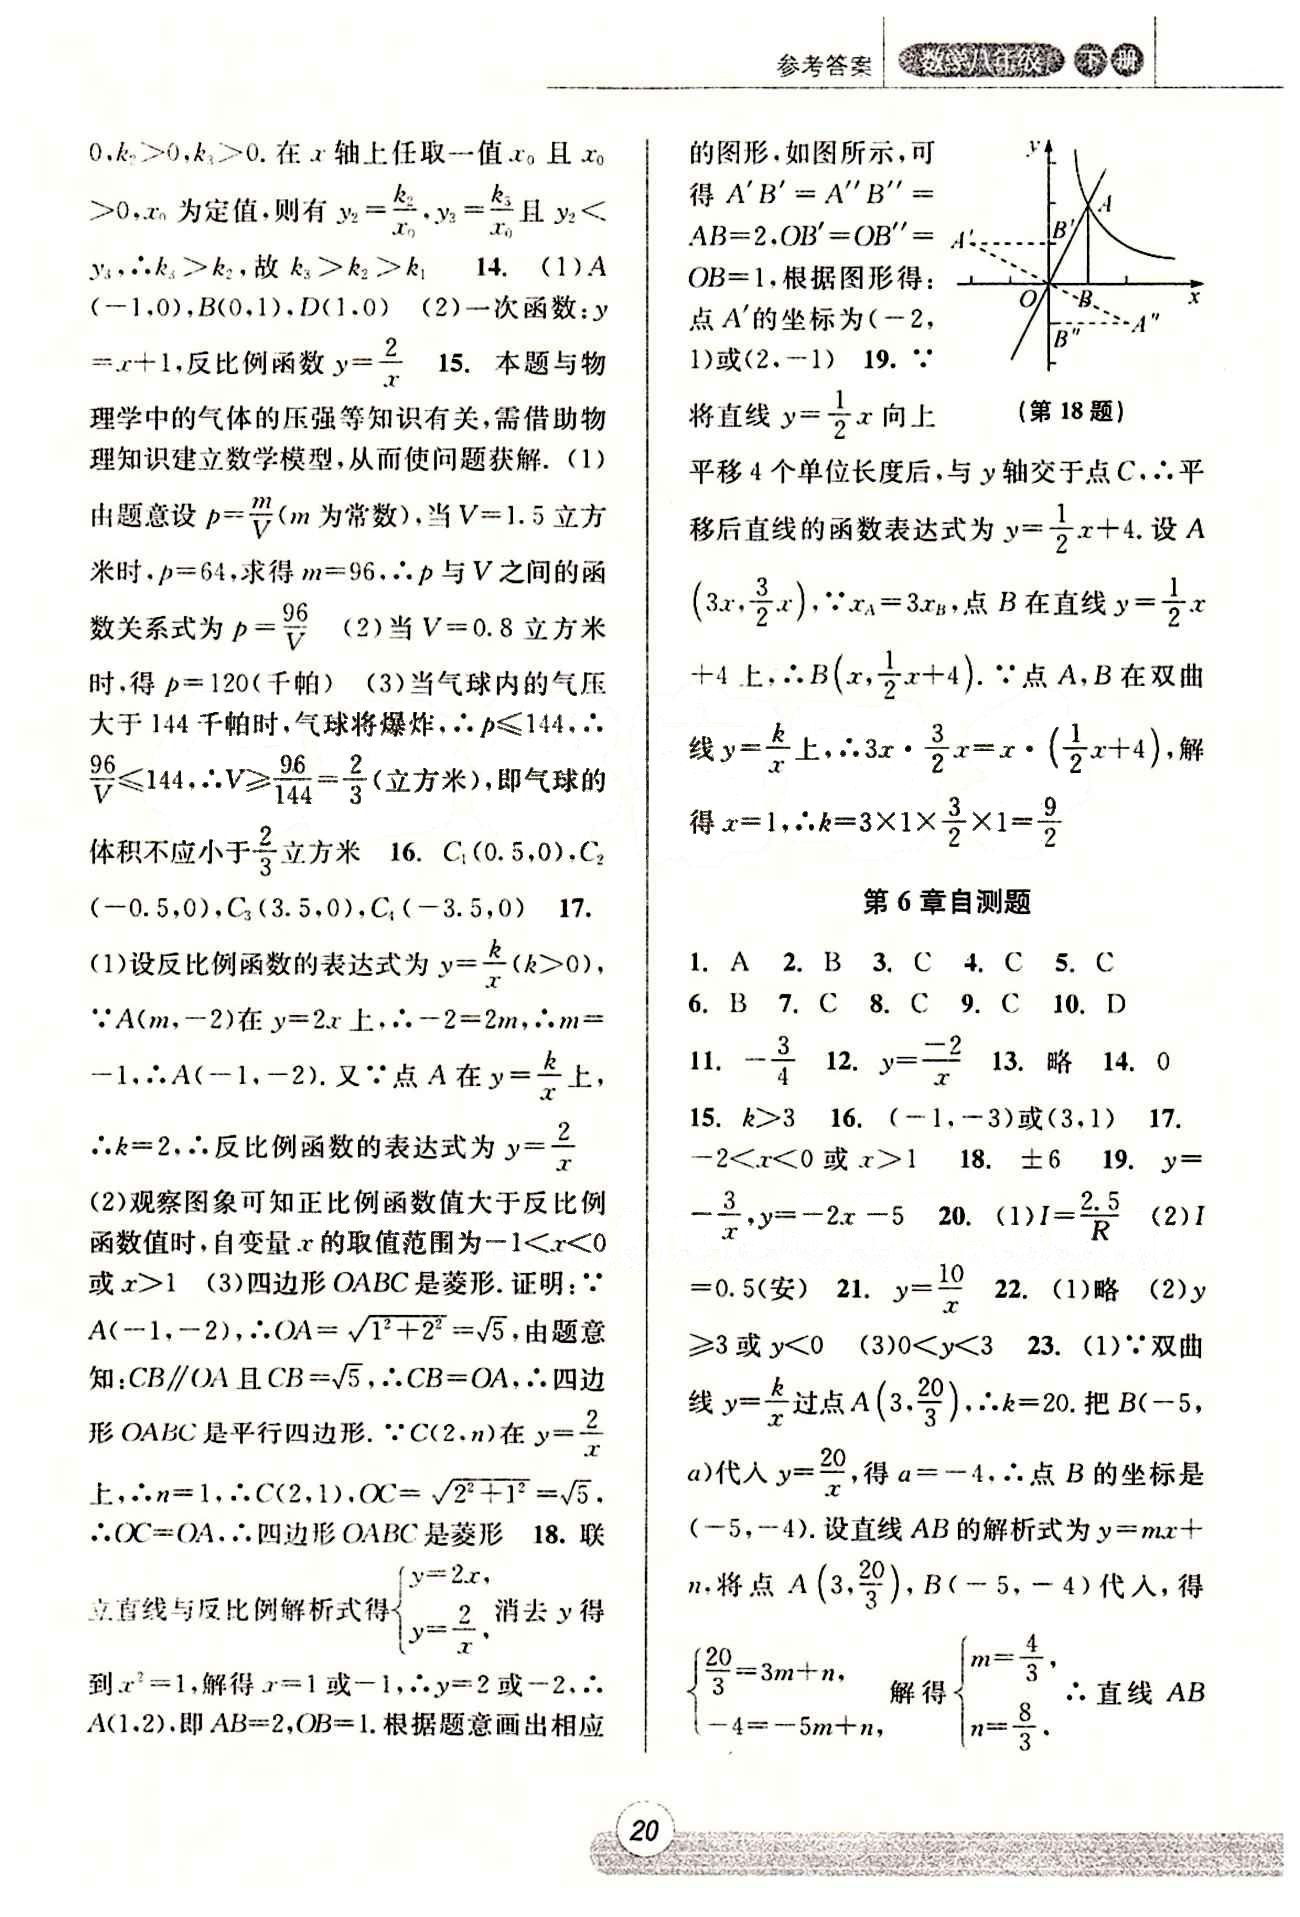 参考答案 数学八年级 下 册
0,k₂>0,k₃>0.在 x 轴上任取一值 x₀ 且 x₀
>0,x₀ 为定值,则有 y₂=k₂/x₀,y₃=k₃/x₀且 y₂<
y₃,∴k₃>k₂,故 k₃>k₂>k₁ 14. (1)A
(-1,0),B(0,1),D(1,0) (2)一次函数:y
=x+1,反比例函数 y=2/x 15. 本题与物
理学中的气体的压强等知识有关,需借助物
理知识建立数学模型,从而使问题获解.(1)
由题意设 p=m/V(m 为常数),当V=1.5立方
米时,p=64,求得 m=96,∴p 与 V 之间的函
数关系式为 p=96/V (2)当 V=0.8 立方米
时,得 p=120(千帕) (3)当气球内的气压
大于 144 千帕时,气球将爆炸,∴p≤144,∴
96/V≤144,∴V≥96/144=2/3(立方米),即气球的
体积不应小于2/3立方米 16. C₁(0.5,0),C₂
(-0.5,0),C₃(3.5,0),C₄(-3.5,0) 17.
(1)设反比例函数的表达式为 y=k/x(k>0),
∵A(m,-2)在 y=2x 上,∴-2=2m,∴m=
-1,∴A(-1,-2).又∵点 A 在 y=k/x上,
∴k=2,∴反比例函数的表达式为 y=2/x
(2)观察图象可知正比例函数值大于反比例
函数值时,自变量 x 的取值范围为-1<x<0
或 x>1 (3)四边形 OABC 是菱形.证明:∵
A(-1,-2),∴OA=√(1²+2²)=√5,由题意
知:CB∥OA 且 CB=√5,∴CB=OA,∴四边
形 OABC 是平行四边形.∵C(2,n)在 y=2/x
上,∴n=1,∴C(2,1),OC=√(2²+1²)=√5,
∴OC=OA,∴四边形 OABC 是菱形 18. 联
立直线与反比例解析式得{y=2x, y=2/x, 消去 y 得
到 x²=1,解得 x=1 或-1,∴y=2 或-2,∴
A(1,2),即 AB=2,OB=1.根据题意画出相应
的图形,如图所示,可
得 A′B′=A″B″=
AB=2,OB′=OB″=
OB=1,根据图形得:
点 A′的坐标为(-2,
1)或(2,-1) 19. ∵
将直线 y=1/2x 向上
y
A
A′
B′
O
B
x
B″
A″
(第 18 题)
平移 4 个单位长度后,与 y 轴交于点 C,∴平
移后直线的函数表达式为 y=1/2x+4.设 A
(3x,3/2x),∵xA=3xB,点 B 在直线 y=1/2x
+4 上,∴B(x,1/2x+4).∵点 A,B 在双曲
线 y=k/x上,∴3x·3/2x=x·(1/2x+4),解
得 x=1,∴k=3×1×3/2×1=9/2
第 6 章自测题
1. A 2. B 3. C 4. C 5. C
6. B 7. C 8. C 9. C 10. D
11. -3/4 12. y=-2/x 13. 略 14. 0
15. k>3 16. (-1,-3)或(3,1) 17.
-2<x<0 或 x>1 18. ±6 19. y=
-3/x,y=-2x-5 20. (1)I=2.5/R (2)I
=0.5(安) 21. y=10/x 22. (1)略 (2)y
≥3 或 y<0 (3)0<y<3 23. (1)∵双曲
线 y=k/x过点 A(3,20/3),∴k=20.把 B(-5,
a)代入 y=20/x,得 a=-4,∴点 B 的坐标是
(-5,-4).设直线 AB 的解析式为 y=mx+
n,将点 A(3,20/3),B(-5,-4)代入,得
{20/3=3m+n, -4=-5m+n, 解得{m=4/3, n=8/3. ∴直线 AB
20